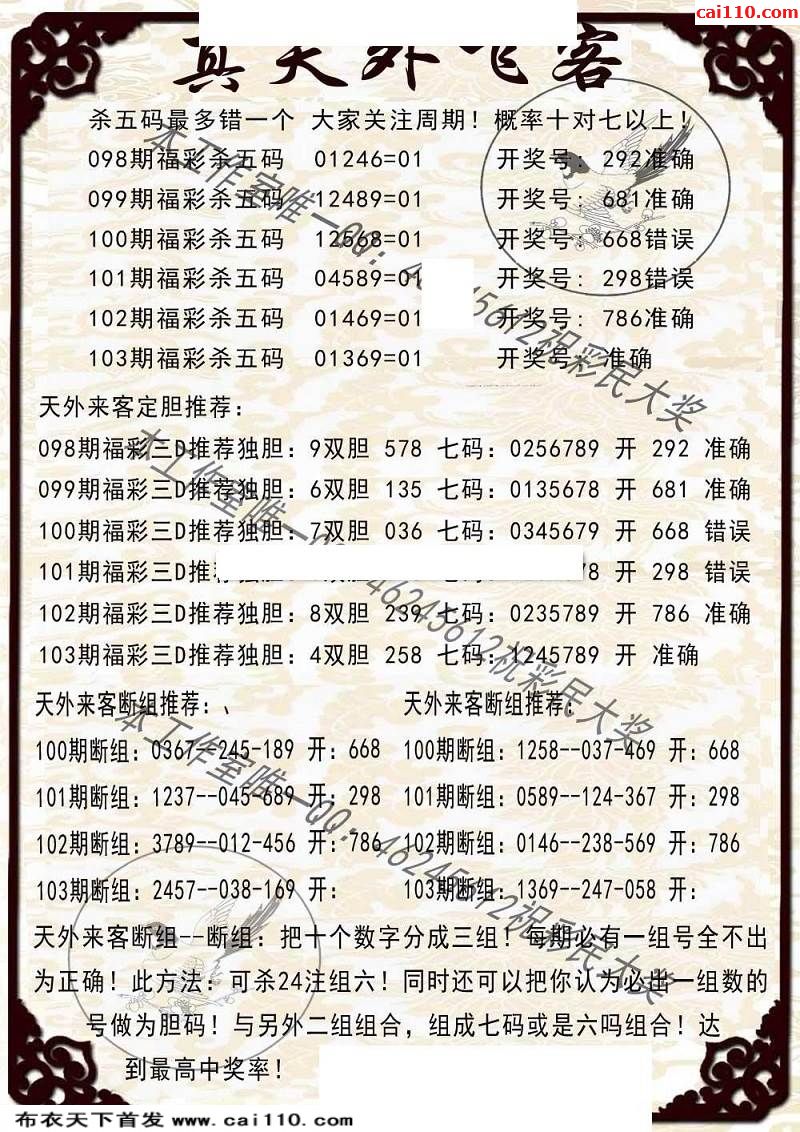 cai110.com
真天外飞客
杀五码最多错一个 大家关注周期！概率十对七以上！
098期福彩杀五码 01246=01 开奖号：292准确
099期福彩杀五码 12489=01 开奖号：681准确
100期福彩杀五码 12568=01 开奖号：668错误
101期福彩杀五码 04589=01 开奖号：298错误
102期福彩杀五码 01469=01 开奖号：786准确
103期福彩杀五码 01369=01 开奖号：准确
天外来客定胆推荐：
098期福彩三D推荐独胆：9双胆 578 七码：0256789 开 292 准确
099期福彩三D推荐独胆：6双胆 135 七码：0135678 开 681 准确
100期福彩三D推荐独胆：7双胆 036 七码：0345679 开 668 错误
101期福彩三D推荐 78 开 298 错误
102期福彩三D推荐独胆：8双胆 239 七码：0235789 开 786 准确
103期福彩三D推荐独胆：4双胆 258 七码：X245789 开 准确
天外来客断组推荐：、 天外来客断组推荐：
100期断组：0367--245-189 开：668 100期断组：1258--037-469 开：668
101期断组：1237--045-689 开：298 101期断组：0589--124-367 开：298
102期断组：3789--012-456 开：786 102期断组：0146--238-569 开：786
103期断组：2457--038-169 开： 103期断组：1369--247-058 开：
天外来客断组--断组：把十个数字分成三组！每期必有一组号全不出
为正确！此方法：可杀24注组六！同时还可以把你认为必出一组数的
号做为胆码！与另外二组组合，组成七码或是六吗组合！达
到最高中奖率！
本工作室唯一QQ：46245612祝彩民大奖
本工作室唯一QQ：46245612祝彩民大奖
本工作室唯一QQ：46245612祝彩民大奖
布衣天下首发 www.cai110.com